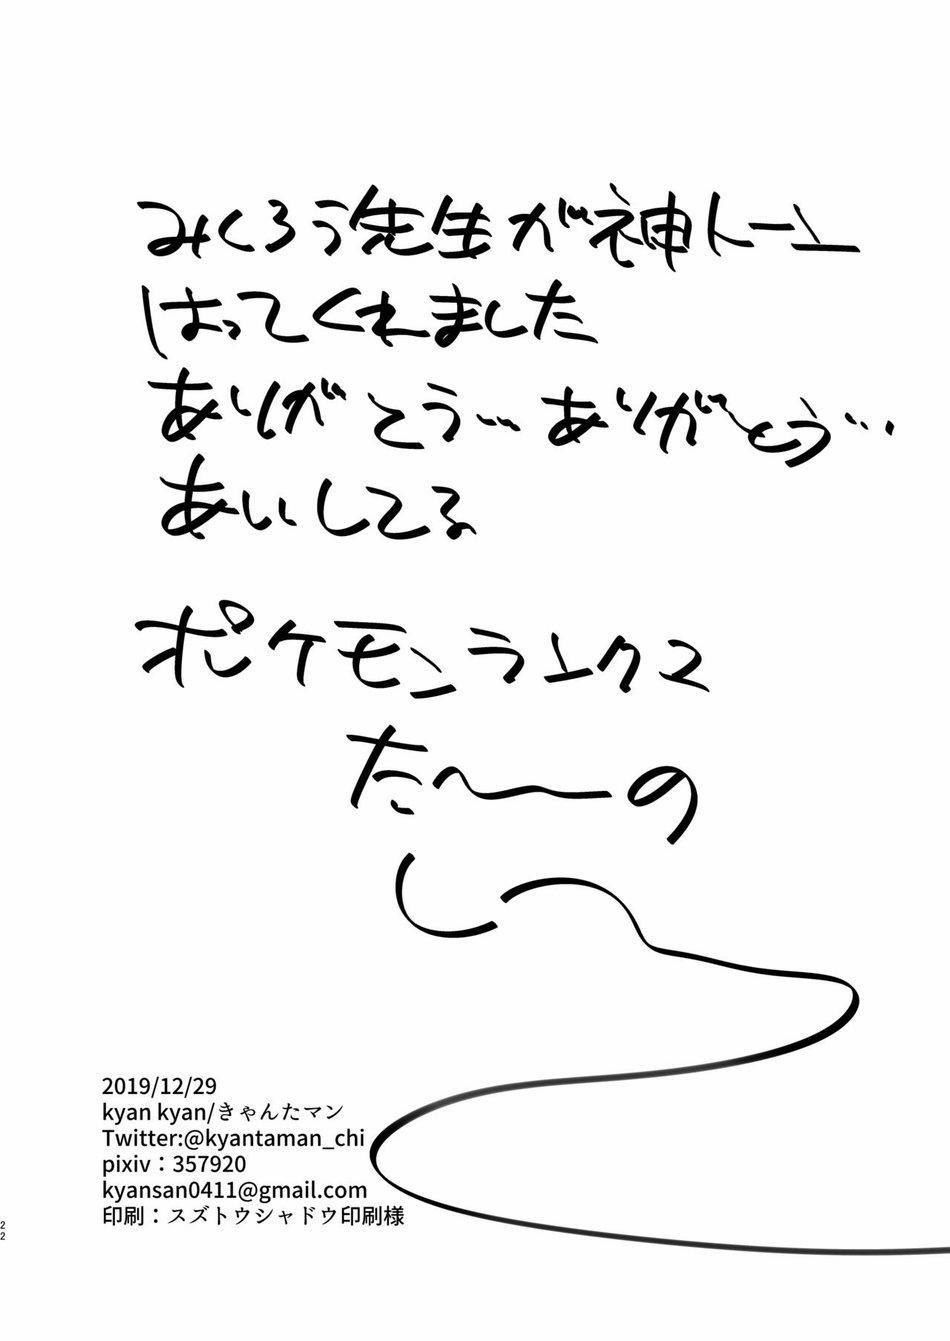 みくろう先生が神トーン
はってくれました
ありがとう…ありがとう…
あいしてる
ポケモンランクマ
た〜〜の
し〜
2019/12/29
kyan kyan/きゃんたマン
Twitter:@kyantaman_chi
pixiv：357920
kyansan0411@gmail.com
印刷：スズトウシャドウ印刷様
22